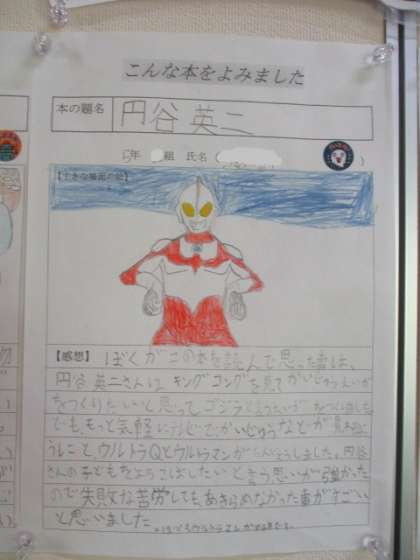 こんな本をよみました
本の題名 円谷 英二
5年 組 氏名
【好きな場面の絵】
【感想】 ぼくがこの本を読んで思った事は、
円谷英二さんは キングコングを見て かいじゅうえいが
をつくりたいと思って ゴジラ
でも、もっと気軽にテレビでかいじゅうなどが
うしこと、ウルトラQとウルトラマンが しました。円谷
さんの子どもをよろこばしたいと言う思いが強かった
ので失敗な苦労しても、あきらめなかった事がすごい
と思いました